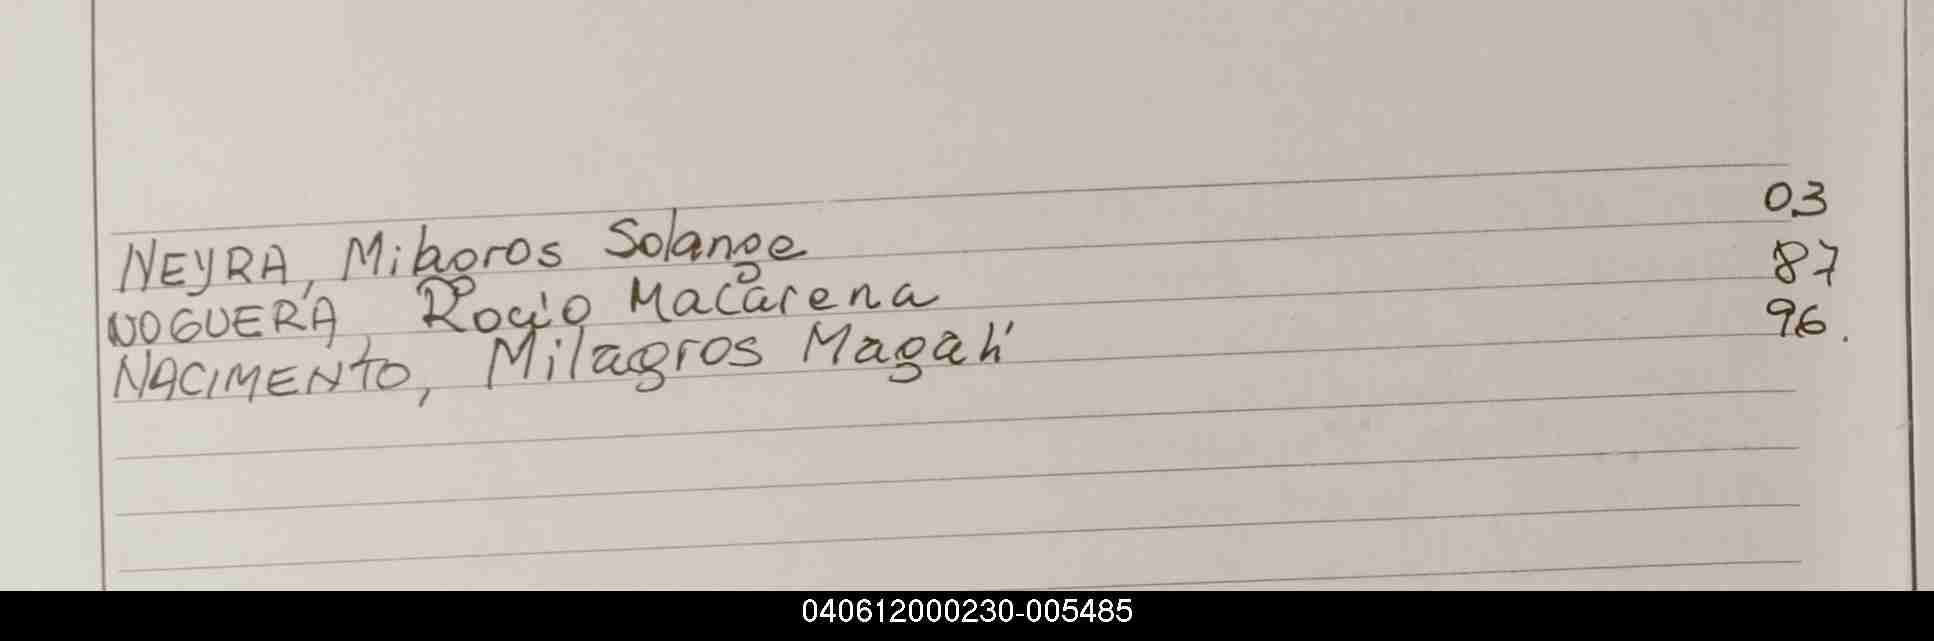 NEYRA, Milagros Solange 03
NOGUERA, Rocío Macarena 87
NACIMENTO, Milagros Magalí 96.
040612000230-005485